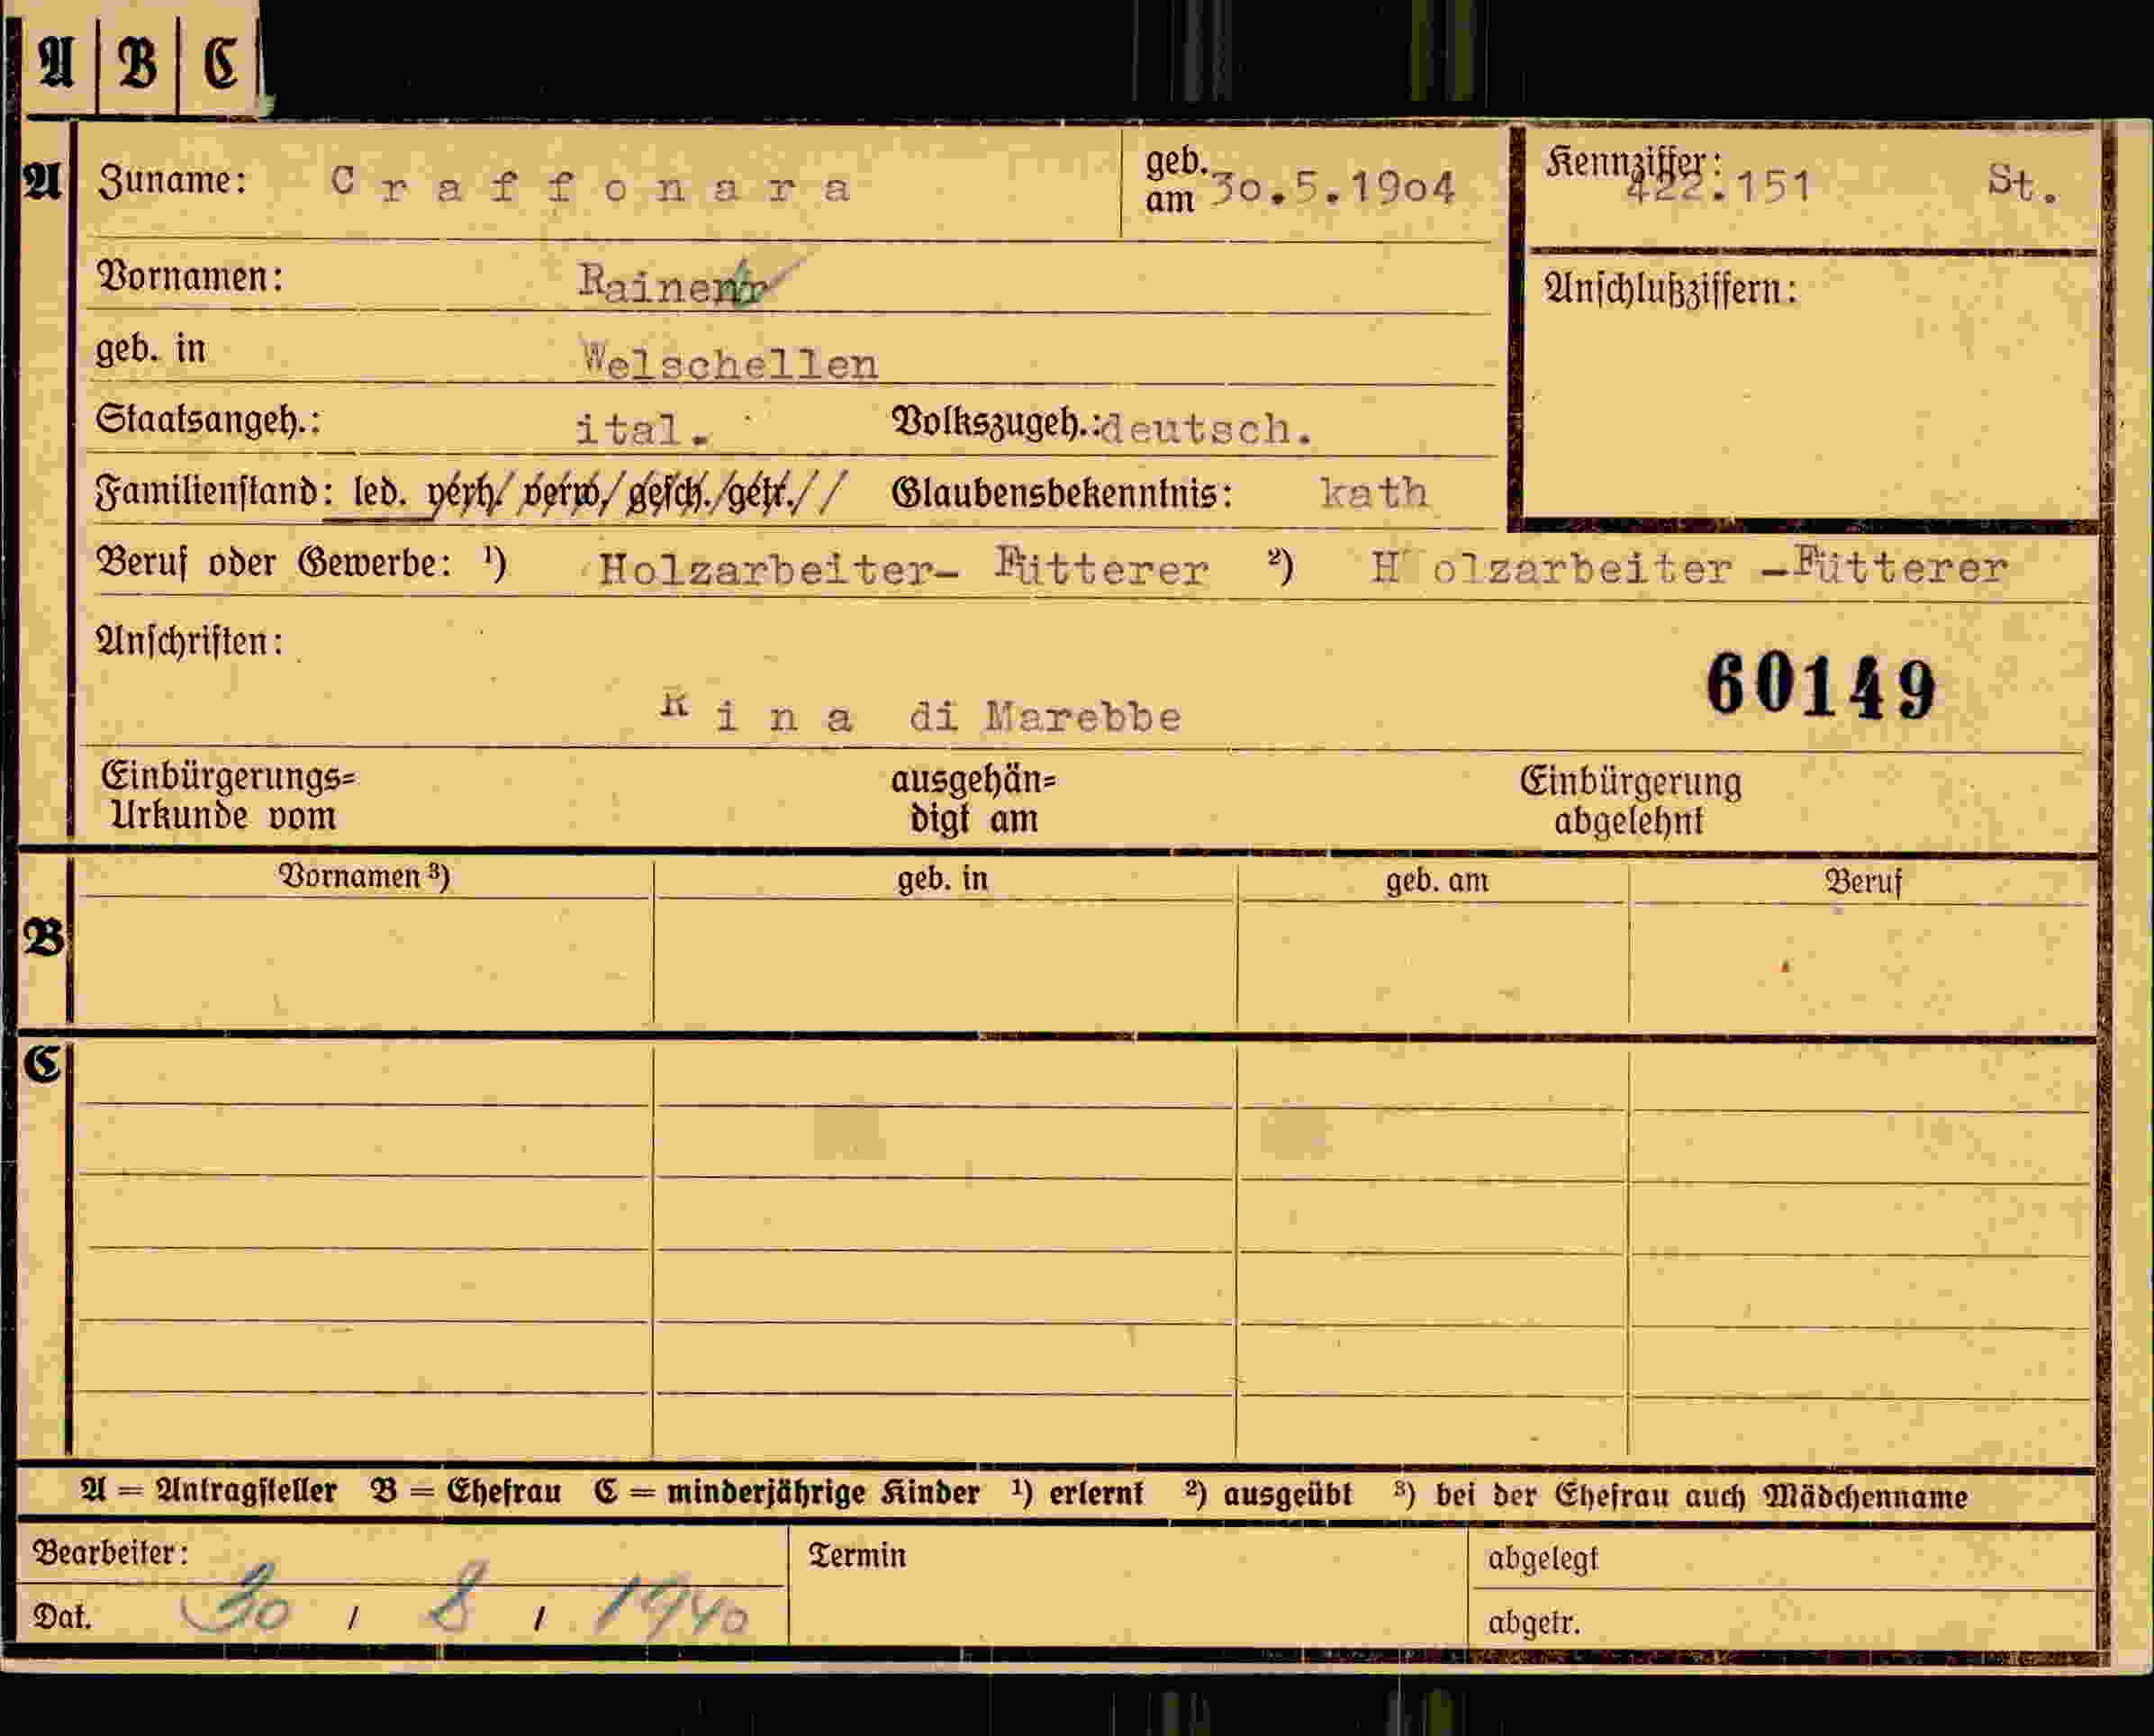 A B C
A Zuname: Craffonara geb. am 30.5.1904 Kennziffer: 422.151 St.
Vornamen: Rainer
Anschlußziffern:
geb. in Welschellen
Staatsangeh.: ital. Volkszugeh.: deutsch.
Familienstand: led. verh. verw. gesch. getr. Glaubensbekenntnis: kath
Beruf oder Gewerbe: ¹) Holzarbeiter- Fütterer ²) H olzarbeiter -Fütterer
Anschriften:
60149
Rina di Marebbe
Einbürgerungs= ausgehän= Einbürgerung
Urkunde vom digt am abgelehnt
Vornamen ³) geb. in geb. am Beruf
B
C
A = Antragsteller B = Ehefrau C = minderjährige Kinder ¹) erlernt ²) ausgeübt ³) bei der Ehefrau auch Mädchenname
Bearbeiter: Termin abgelegt
Dat. 30 / 8 / 1940 abgetr.